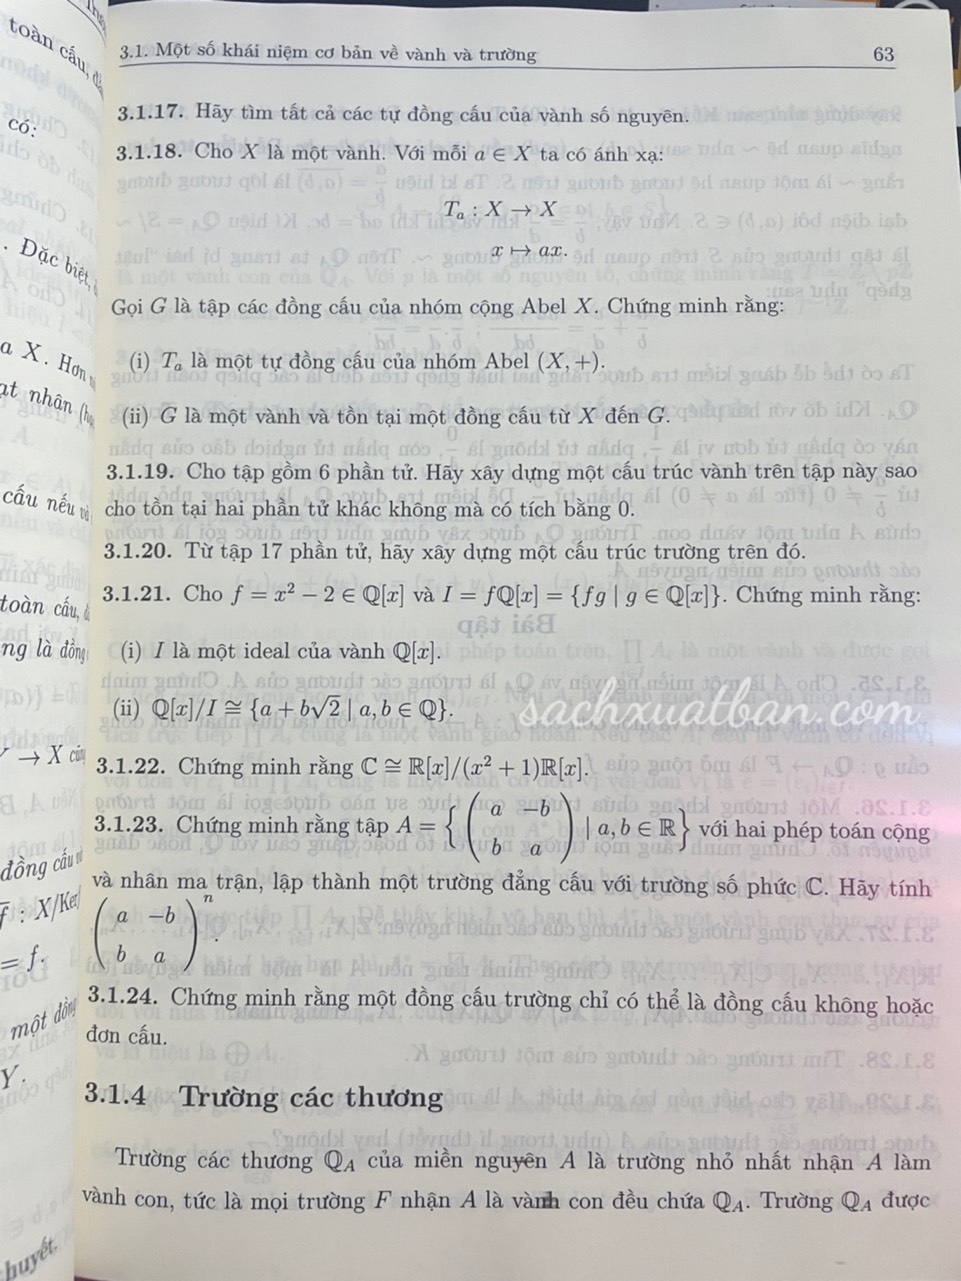 3.1. Một số khái niệm cơ bản về vành và trường 63
3.1.17. Hãy tìm tất cả các tự đồng cấu của vành số nguyên.
3.1.18. Cho X là một vành. Với mỗi a ∈ X ta có ánh xạ:
T_a : X → X
x ↦ ax.
Gọi G là tập các đồng cấu của nhóm cộng Abel X. Chứng minh rằng:
(i) T_a là một tự đồng cấu của nhóm Abel (X, +).
(ii) G là một vành và tồn tại một đồng cấu từ X đến G.
3.1.19. Cho tập gồm 6 phần tử. Hãy xây dựng một cấu trúc vành trên tập này sao
cho tồn tại hai phần tử khác không mà có tích bằng 0.
3.1.20. Từ tập 17 phần tử, hãy xây dựng một cấu trúc trường trên đó.
3.1.21. Cho f = x² − 2 ∈ ℚ[x] và I = fℚ[x] = {fg | g ∈ ℚ[x]}. Chứng minh rằng:
(i) I là một ideal của vành ℚ[x].
(ii) ℚ[x]/I ≅ {a + b√2 | a, b ∈ ℚ}.
sachxuatban.com
3.1.22. Chứng minh rằng ℂ ≅ ℝ[x]/(x² + 1)ℝ[x].
3.1.23. Chứng minh rằng tập A = { ( a −b
b a ) | a, b ∈ ℝ } với hai phép toán cộng
và nhân ma trận, lập thành một trường đẳng cấu với trường số phức ℂ. Hãy tính
( a −b
b a )ⁿ.
3.1.24. Chứng minh rằng một đồng cấu trường chỉ có thể là đồng cấu không hoặc
đơn cấu.
3.1.4 Trường các thương
Trường các thương ℚ_A của miền nguyên A là trường nhỏ nhất nhận A làm
vành con, tức là mọi trường F nhận A là vành con đều chứa ℚ_A. Trường ℚ_A được
toàn cấu,
có:
. Đặc biệt,
a X. Hơn
ạt nhân
cấu nếu
toàn cấu,
ng là đồng
→ X
đồng cấu
f̄ : X/Ker
= f.
một đồng
Y.
huyết.